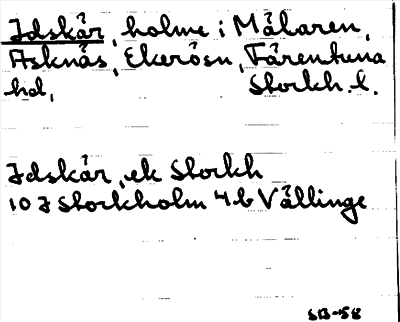 Idskär, holme i Mälaren,
Asknäs, Ekerösn, Färentuna
hd, Storkh. l.
Idskär, ek Storkh
10 I Storkholm 4 b Vällinge
SB-58